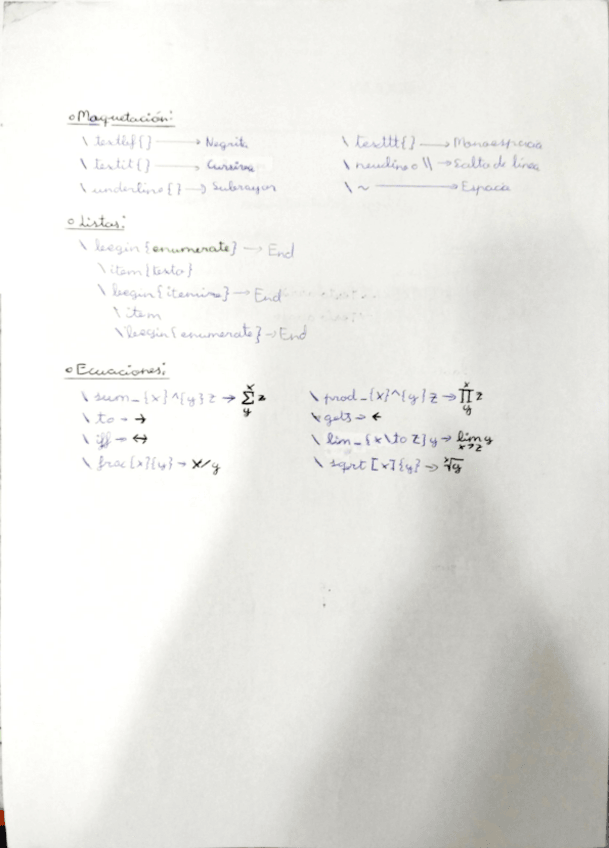 o Maquetación:
\textbf{} → Negrita
\textit{} → Cursiva
\underline{} → Subrayar
\texttt{} → Monoespacia
\newline o \\ → Salto de línea
\~ → Espacio
o Listas:
\begin{enumerate} → End
\item{texto}
\begin{itemize} → End
\item
\begin{enumerate} → End
o Ecuaciones:
\sum_{x}^{y} z → x Σ y z
\to → →
\iff → ↔
\frac{x}{y} → x/y
\prod_{x}^{y} z → x ∏ y z
\gets → ←
\lim_{x\to z} y → lim x→z y
\sqrt[x]{y} → ˣ√y